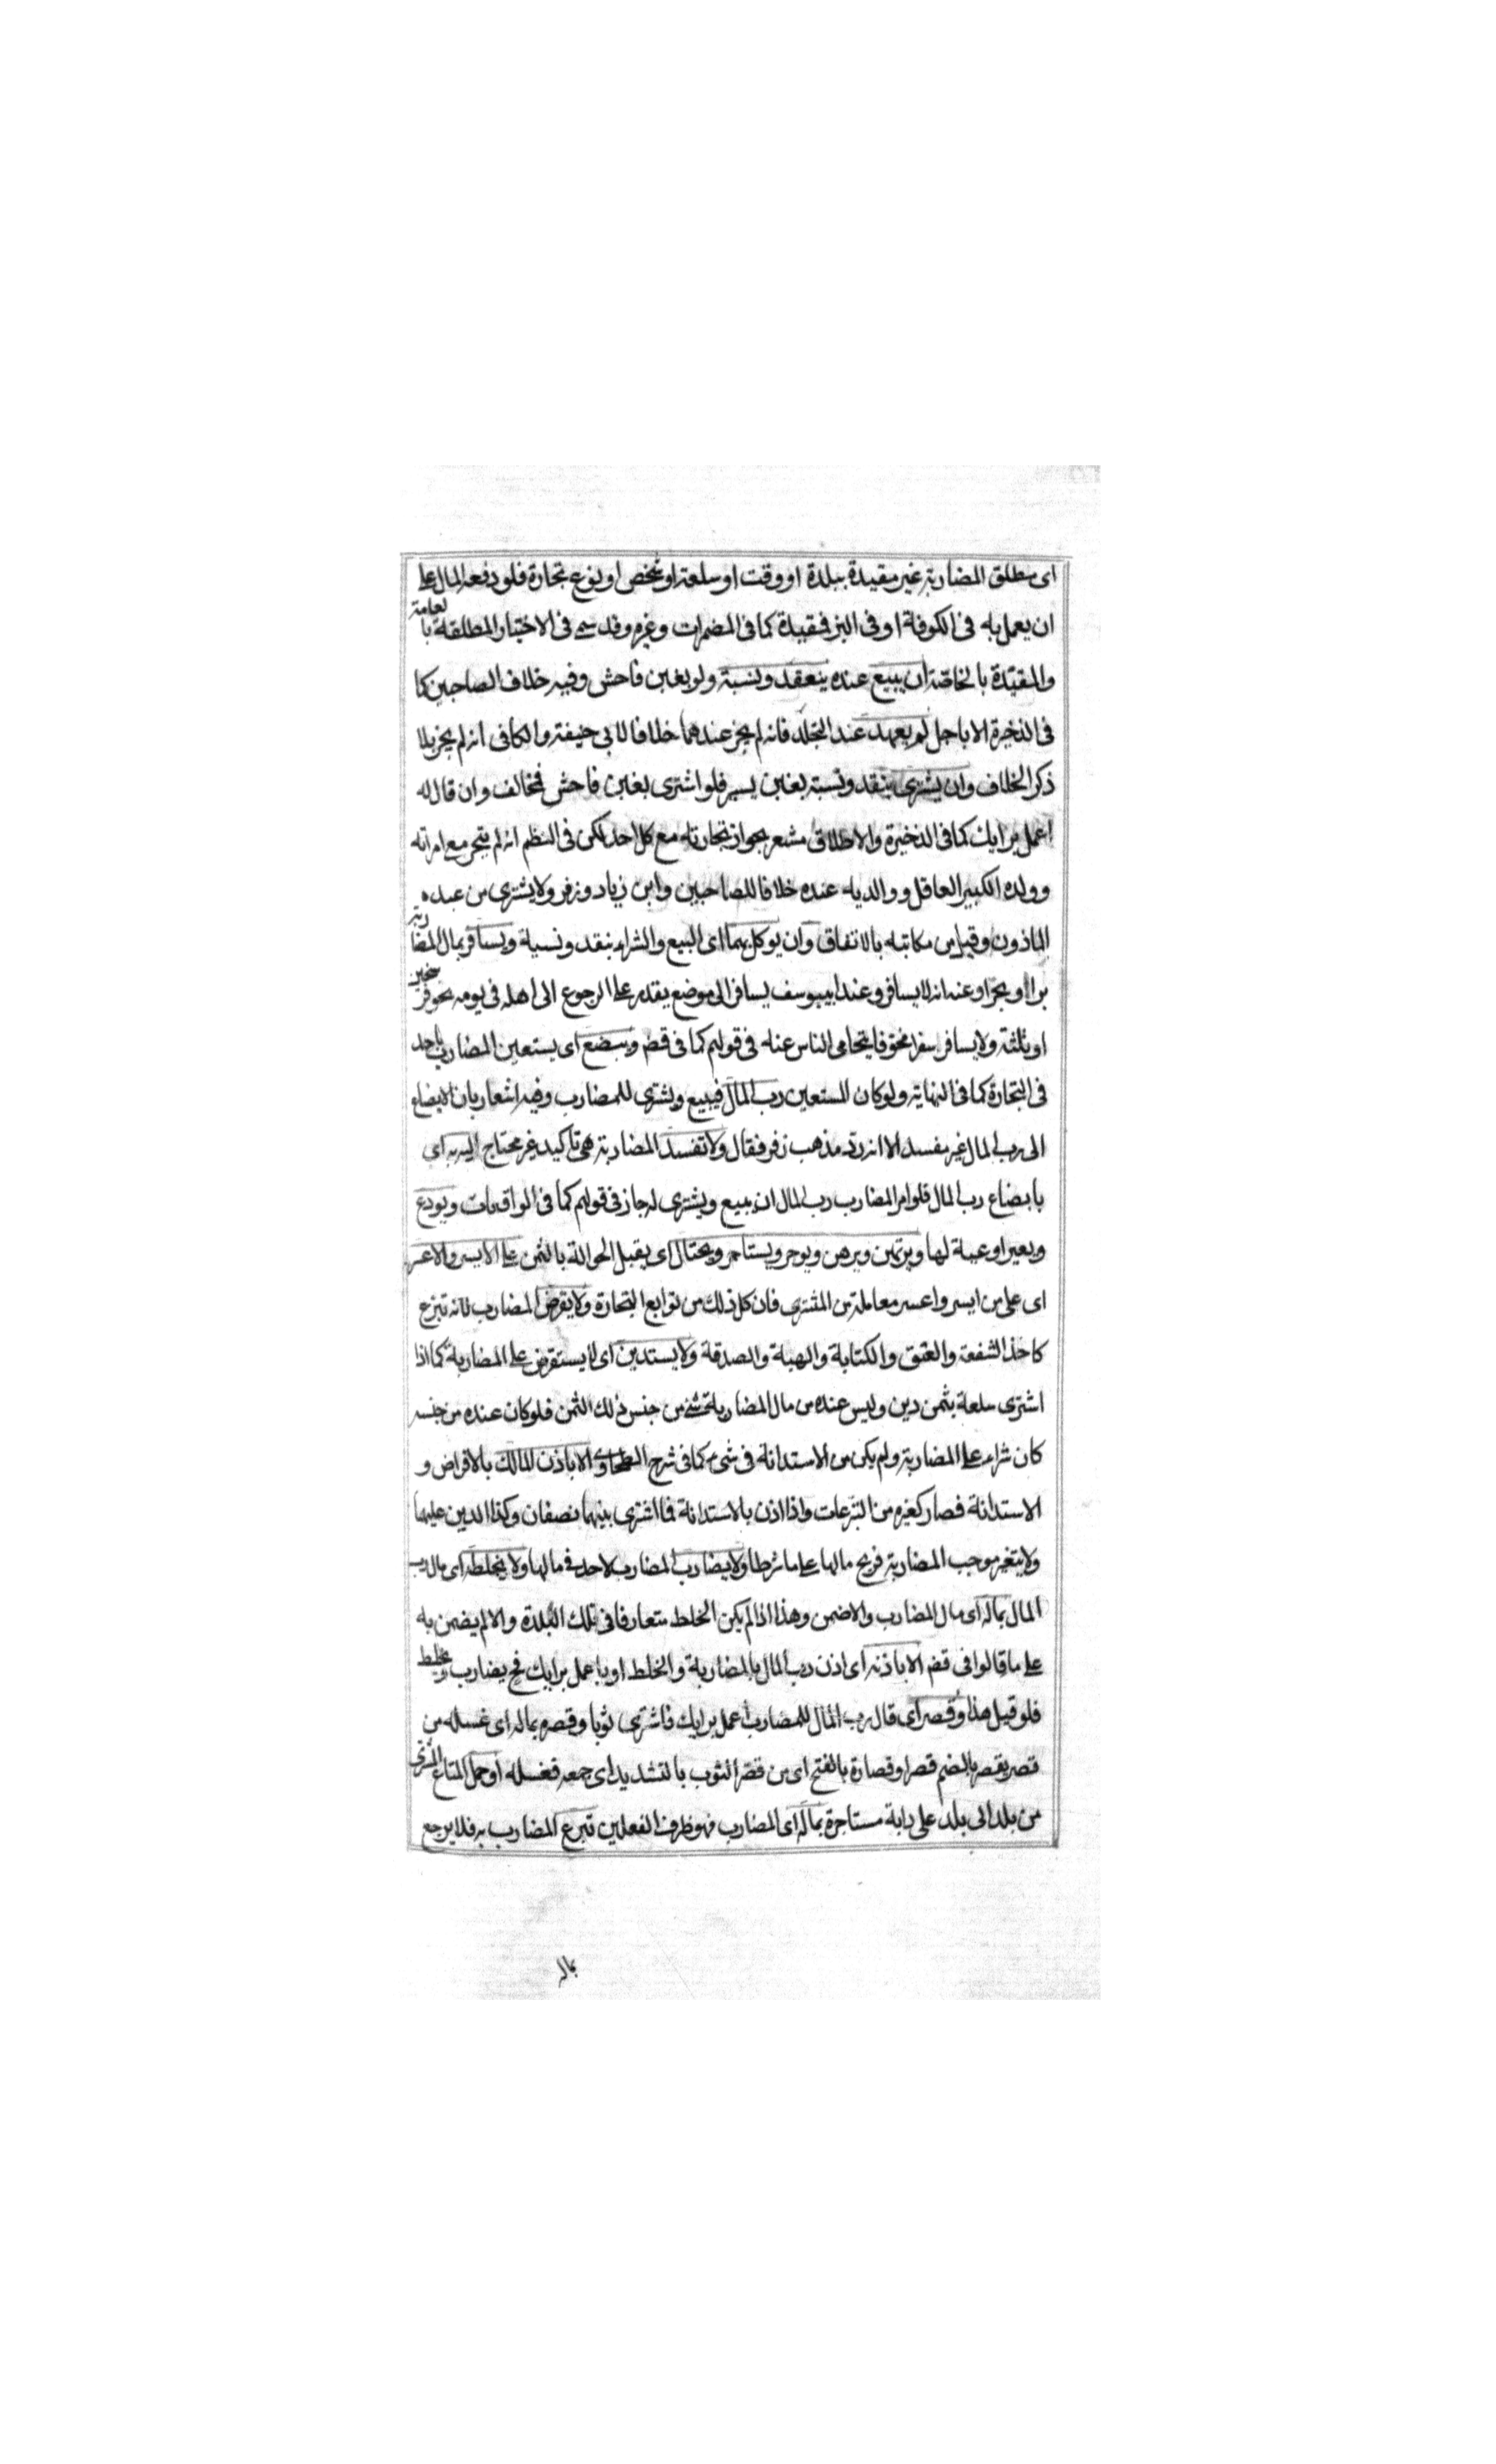 اى مطلق المضاربة غير مقيدة ببلدة او وقت او سلعة او شخص او نوع تجارة فلو دفعه المال على
ان يعمل به فى الكوفة او فى البز فمقيدة كما فى المضمرات وغيره وقد سمى فى الاختيار المطلقة بالعامة
والمقيدة بالخاصة ان يبيع عنده بنقد ونسية ولو بغبن فاحش وفيه خلاف الصاحبين كما
فى الذخيرة الا باجل لم يعهد عند التجار فانه لم يجز عندهما خلافا لابى حنيفة والكافى انه لم يجز بلا
ذكر الخلاف وان يشترى بنقد ونسية بغبن يسير فلو اشترى بغبن فاحش فمخالف وان قال له
اعمل برايك كما فى الذخيرة والاطلاق مشعر بجواز تجارته مع كل احد لكن فى النظم انه لم يتجر مع امراته
وولده الكبير العاقل ووالديه عنده خلافا للصاحبين وابن زياد وزفر ولا يشترى من عبده
الماذون وقيل من مكاتبه بالاتفاق وان يوكل بهما اى البيع والشراء بنقد ونسية ويسافر بمال المضاربة
برا او بحرا وعنه انه لا يسافر وعند ابيوسف يسافر الى موضع يقدر على الرجوع الى اهله فى يومه نحو فرسخين
او ثلثة ولا يسافر سفرا مخوفا يتحامى الناس عنه فى قولهم كما فى قض ويبضع اى يستعين المضارب باحد
فى التجارة كما فى النهاية ولو كان المستعين رب المال فيبيع ويشترى للمضارب وفيه اشعار بان الابضاع
الى رب المال غير مفسد الا انه رد مذهب زفر فقال ولا تفسد المضاربة هى تاكيد غير محتاج اليه به اى
بابضاع رب المال فلو امر المضارب رب المال ان يبيع ويشترى له جاز فى قولهم كما فى الواقعات ويودع
ويعير اوعية لها ويرتهن ويرهن ويوجر ويستاجر ويحتال اى يقبل الحوالة بالثمن على الايسر والاعسر
اى على من ايسر واعسر معاملة من المشترى فان كل ذلك من توابع التجارة ولا يقرض المضارب لانه تبرع
كاخذ الشفعة والعتق والكتابة والهبة والصدقة ولا يستدين اى لا يستقرض على المضاربة كما اذا
اشترى سلعة بثمن دين وليس عنده من مال المضاربة شئ من جنس ذلك الثمن فلو كان عنده من جنسه
كان شراء على المضاربة ولم يكن من الاستدانة فى شىء كما فى شرح الطحاوى الا باذن المالك بالاقراض و
الاستدانة فصار كغيره من التبرعات واذا اذن بالاستدانة فما اشترى بينهما نصفان وكذا الدين عليهما
ولا يتغير موجب المضاربة فربح مالها على ما شرطا ولا يضارب المضارب لاحد فى مالها ولا يخلطه اى مال رب
المال بماله اى مال المضارب والا ضمن وهذا اذا لم يكن الخلط متعارفا فى تلك البلدة والا لم يضمن به
على ما قالوا فى قض الا باذنه اى اذن رب المال بالمضاربة والخلط او باعمل برايك فح يضارب ويخلط
فلو قيل هذا وقصر اى قال رب المال للمضارب اعمل برايك فاشترى ثوبا وقصره بماله اى غسله من
قصر يقصر بالضم قصرا وقصارة بالفتح اى من قصر الثوب بالتشديد اى جمعه فغسله او حمل المتاع المشترى
من بلد الى بلد على دابة مستاجرة بماله اى المضارب فهو ظرف الفعلين تبرع المضارب به فلا يرجع
بماله